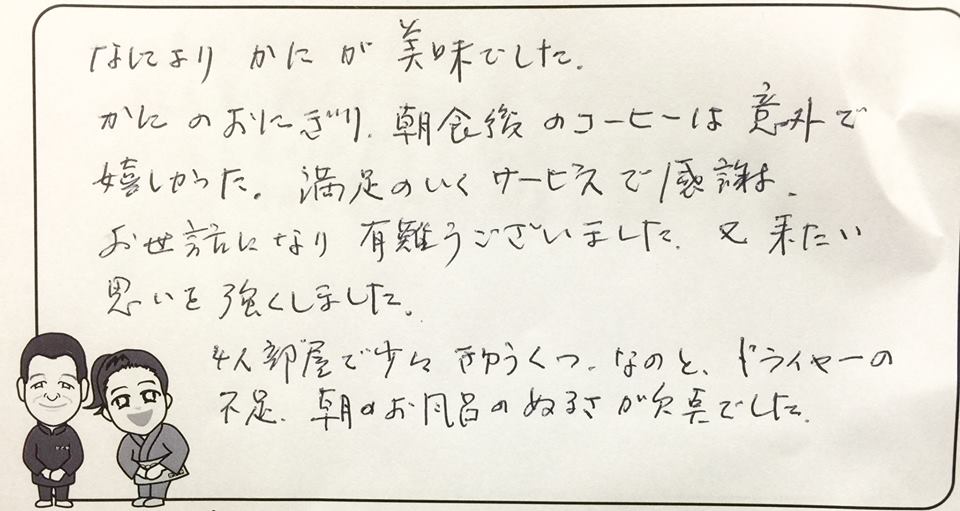 なによりかにが美味でした。
かにのおにぎり、朝食後のコーヒーは意外で
嬉しかった。満足のいくサービスで感謝です。
お世話になり有難うございました。又来たい
思いを強くしました。
4人部屋で少々きゅうくつ。なのと、ドライヤーの
不足、朝のお風呂のぬるさが欠点でした。